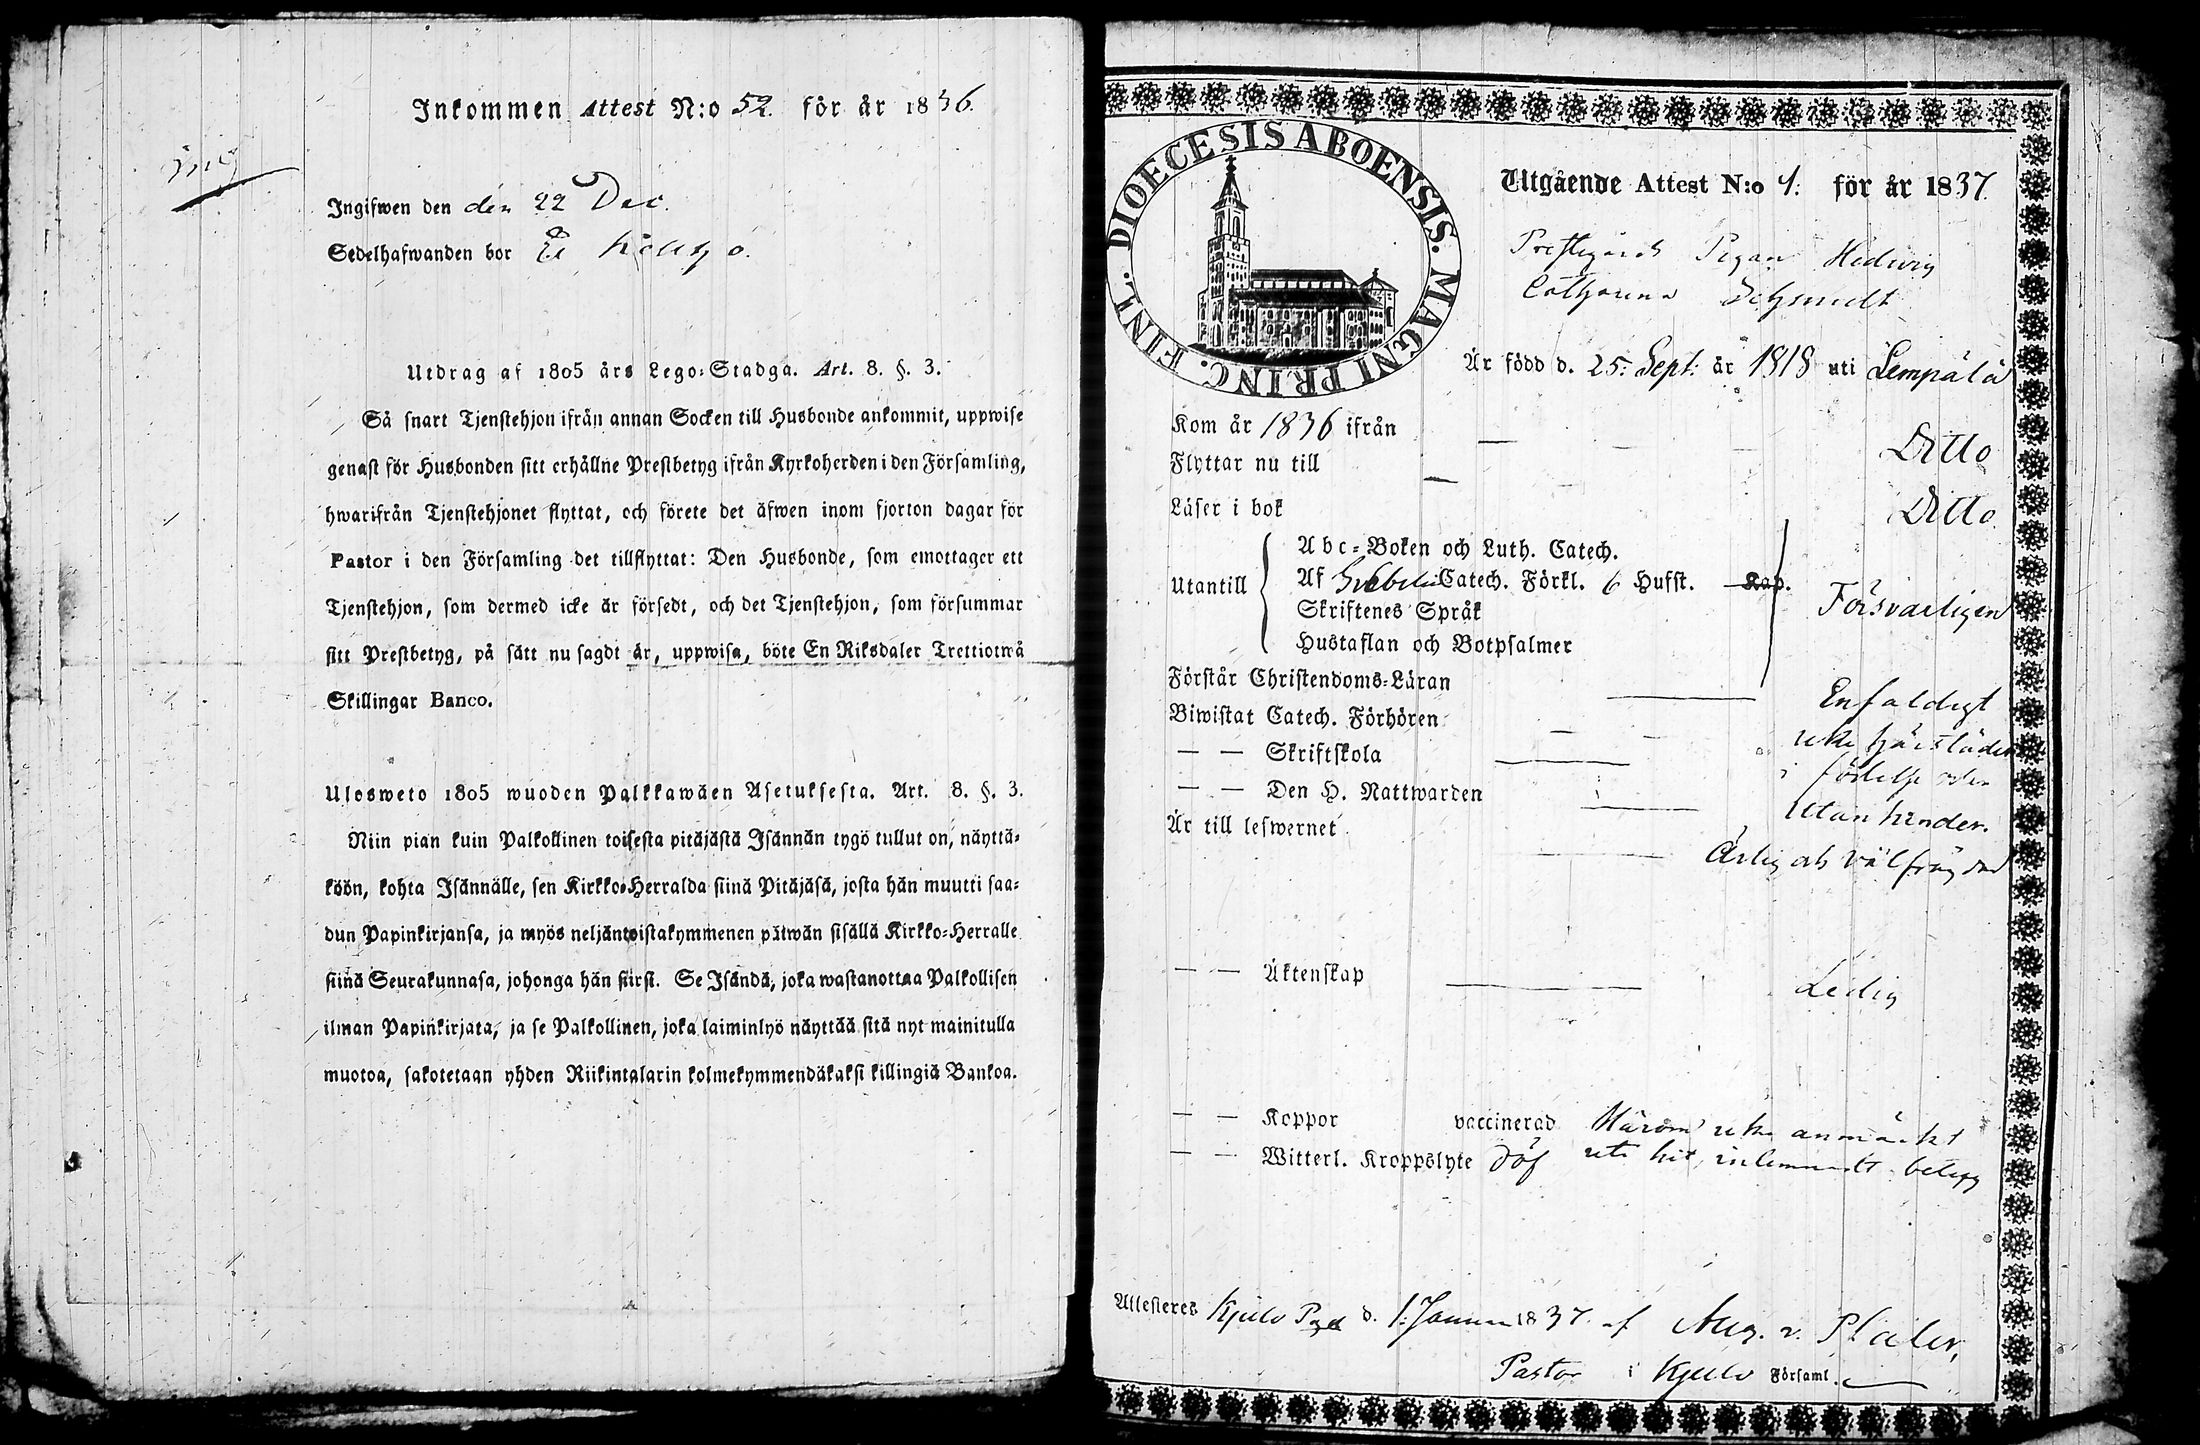 Inkommen Attest N:o 52. för år 1836.
Ingifwen den den 22 Dec.
Sedelhafwanden bor
Utdrag af 1805 års Lego-Stadga. Art. 8. §. 3.
Så snart Tjenstehjon ifrån annan Socken till Husbonde ankommit, uppwise
genast för Husbonden sitt erhållne Prestbetyg ifrån Kyrkoherden i den Församling,
hwarifrån Tjenstehjonet flyttat, och förete det äfwen inom fjorton dagar för
Pastor i den Församling det tillflyttat: Den Husbonde, som emottager ett
Tjenstehjon, som dermed icke är försedt, och det Tjenstehjon, som försummar
sitt Prestbetyg, på sätt nu sagdt är, uppwisa, böte En Riksdaler Trettiotwå
Skillingar Banco.
Ulosweto 1805 wuoden Palkkawäen Asetuksesta. Art. 8. §. 3.
Niin pian kuin Palkollinen toisesta pitäjästä Isännän tygö tullut on, näyttä-
köön, kohta Isännälle, sen Kirkko-Herralda siinä Pitäjäsä, josta hän muutti saa-
dun Papinkirjansa, ja myös neljäntoistakymmenen päiwän sisällä Kirkko-Herralle
siinä Seurakunnasa, johonga hän siirsi. Se Isändä, joka wastanottaa Palkollisen
ilman Papinkirjata, ja se Palkollinen, joka laiminlyö näyttää sitä nyt mainitulla
muotoa, sakotetaan yhden Riikintalarin kolmekymmendäkaksi killingiä Bankoa.
DIOECESIS ABOENSIS. MAGNI PRINC. FINL.
Utgående Attest N:o 1. för år 1837.
Prestgårds Pigan Hedwig
Catharina Schmidt
Är född d. 25. Sept: år 1818 uti Lempälä
Kom år 1836 ifrån Ditto
Flyttar nu till Ditto
Läser i bok
Utantill
Abc-Boken och Luth. Catech.
Af Catech. Förkl. 6 Hufst. Kap. Försvarligen
Skriftenes Språk
Hustaflan och Botpsalmer
Förstår Christendoms-Läran Enfaldigt
Biwistat Catech. Förhören
— — Skriftskola
— — Den H. Nattwarden Utan hinder.
Är till lefwernet Ärlig och välfrägdad
— — Äktenskap Ledig
— — Koppor vaccinerad
— — Witterl. Kroppslyte
Attesteres Kjulo d. 1. Januari 1837. af Aug. v. Platen,
Pastor i Kjulo Församl.